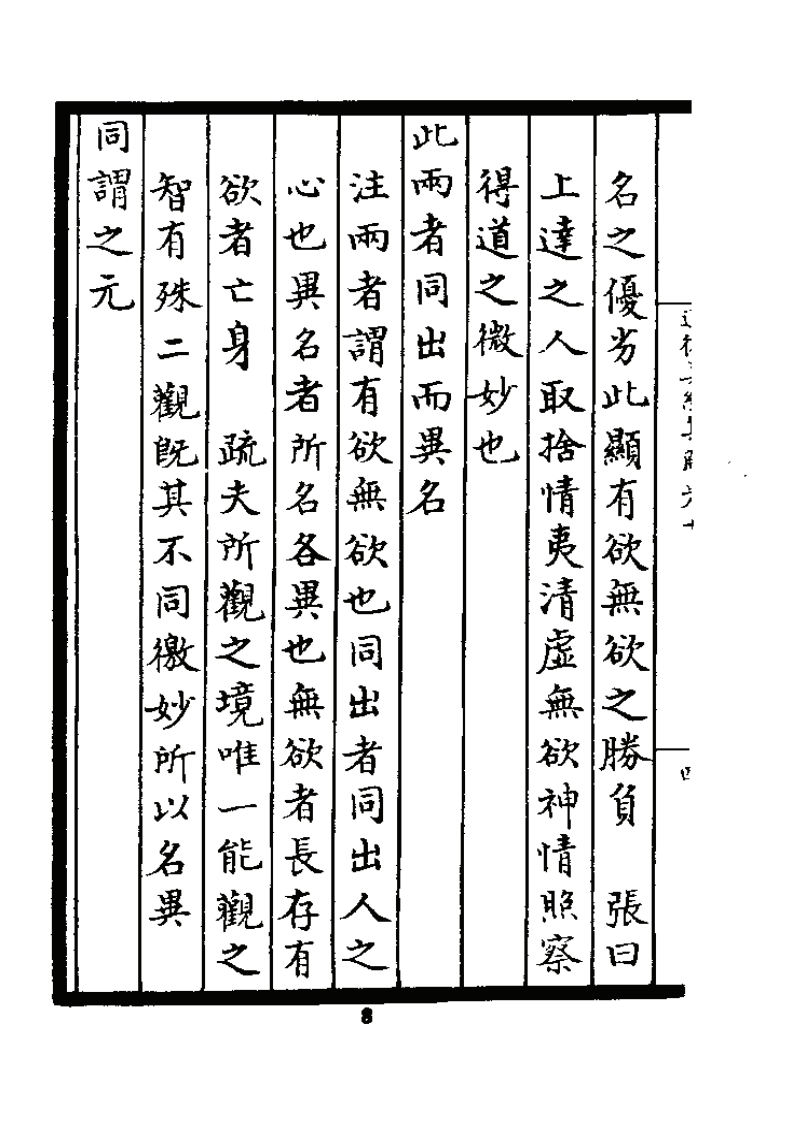 名之優劣此顯有欲無欲之勝負　張曰
上達之人取捨情夷清虛無欲神情照察
得道之微妙也
此兩者同出而異名
注兩者謂有欲無欲也同出者同出人之
心也異名者所名各異也無欲者長存有
欲者亡身　疏夫所觀之境唯一能觀之
智有殊二觀旣其不同徼妙所以名異
同謂之元
8